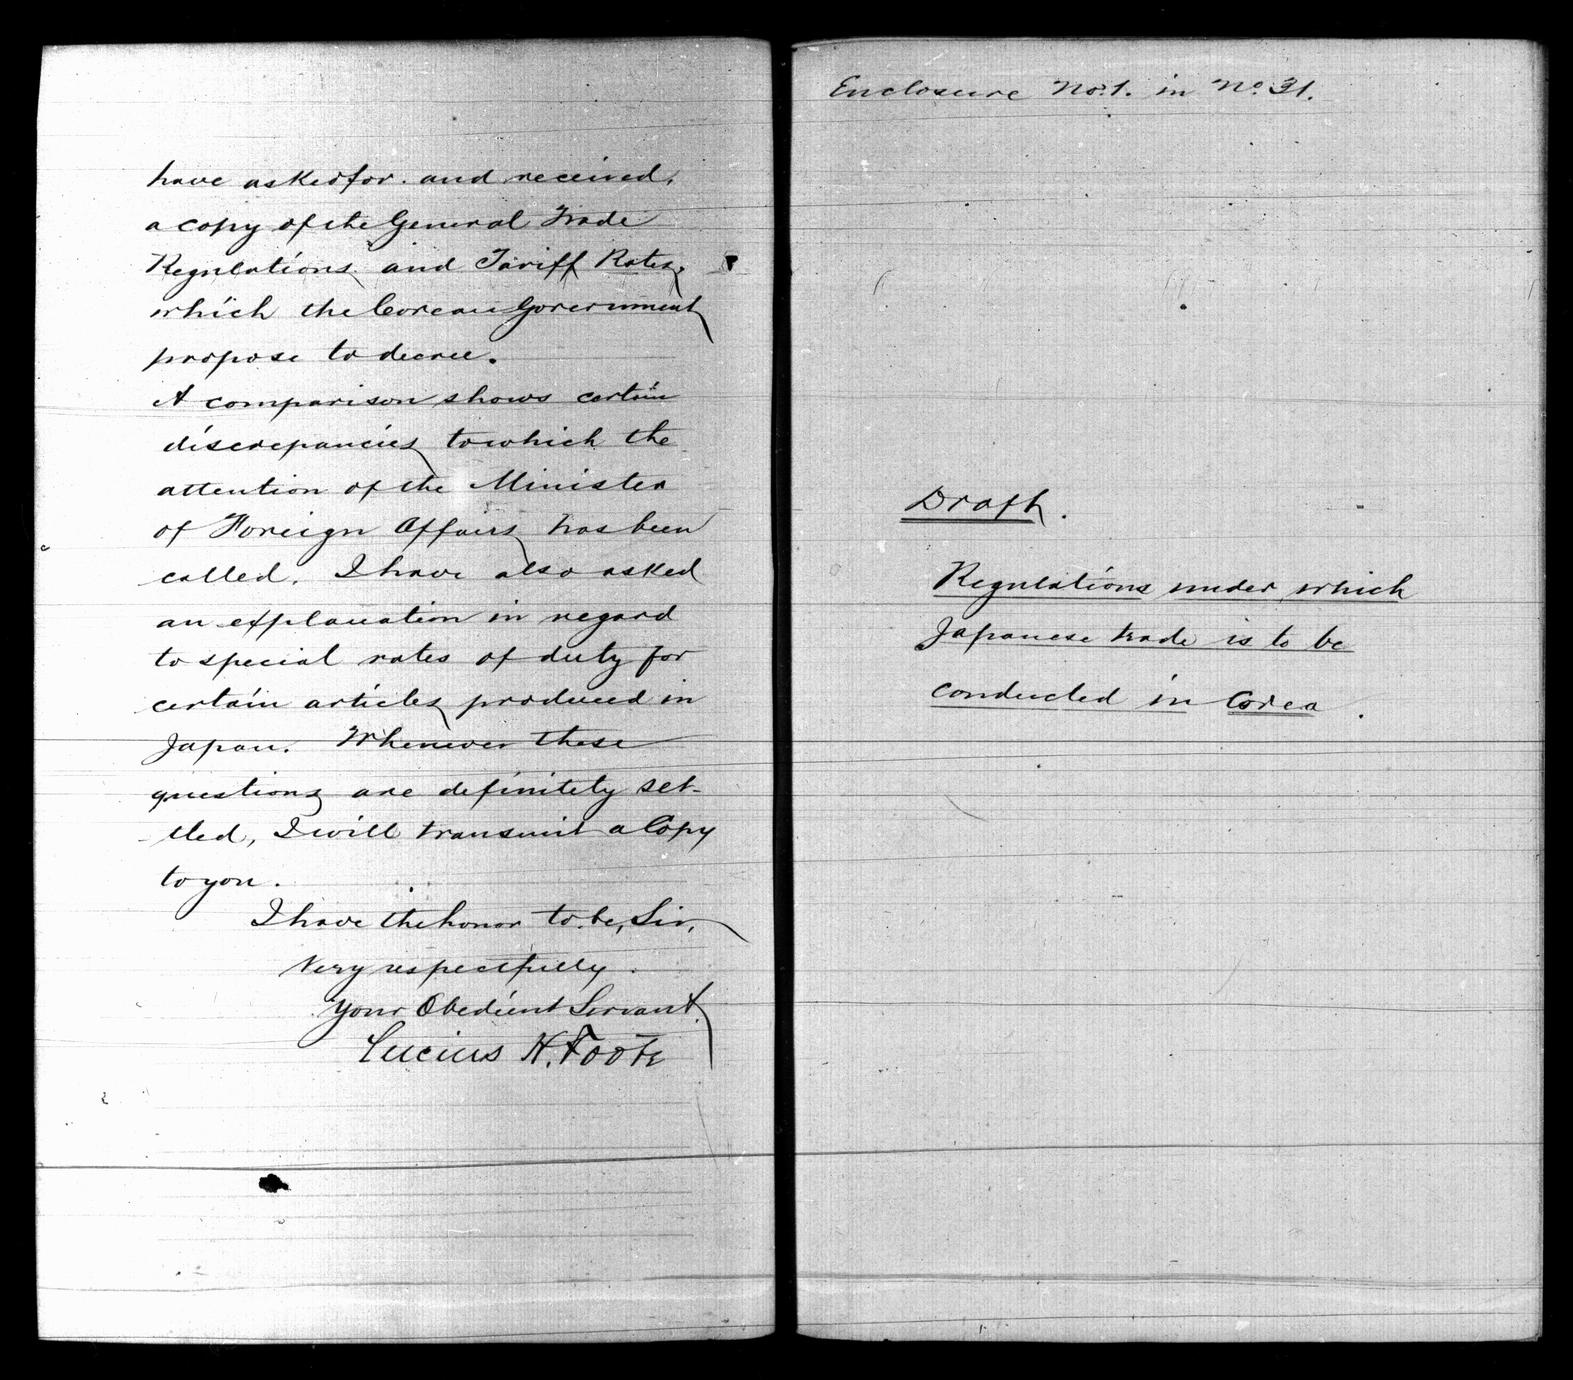 have asked for and received,
a copy of the General Trade
Regulations and Tariff Rates,
which the Corean Government
propose to decree.
A comparison shows certain
discrepancies to which the
attention of the Minister
of Foreign Affairs has been
called. I have also asked
an explanation in regard
to special rates of duty for
certain articles produced in
Japan. Whenever these
questions are definitely set-
tled, I will transmit a Copy
to you.
I have the honor to be, Sir,
Very respectfully.
Your Obedient Servant.
Lucius H. Foote
Enclosure No. 1. in No. 31.
Draft.
Regulations under which
Japanese trade is to be
conducted in Corea.